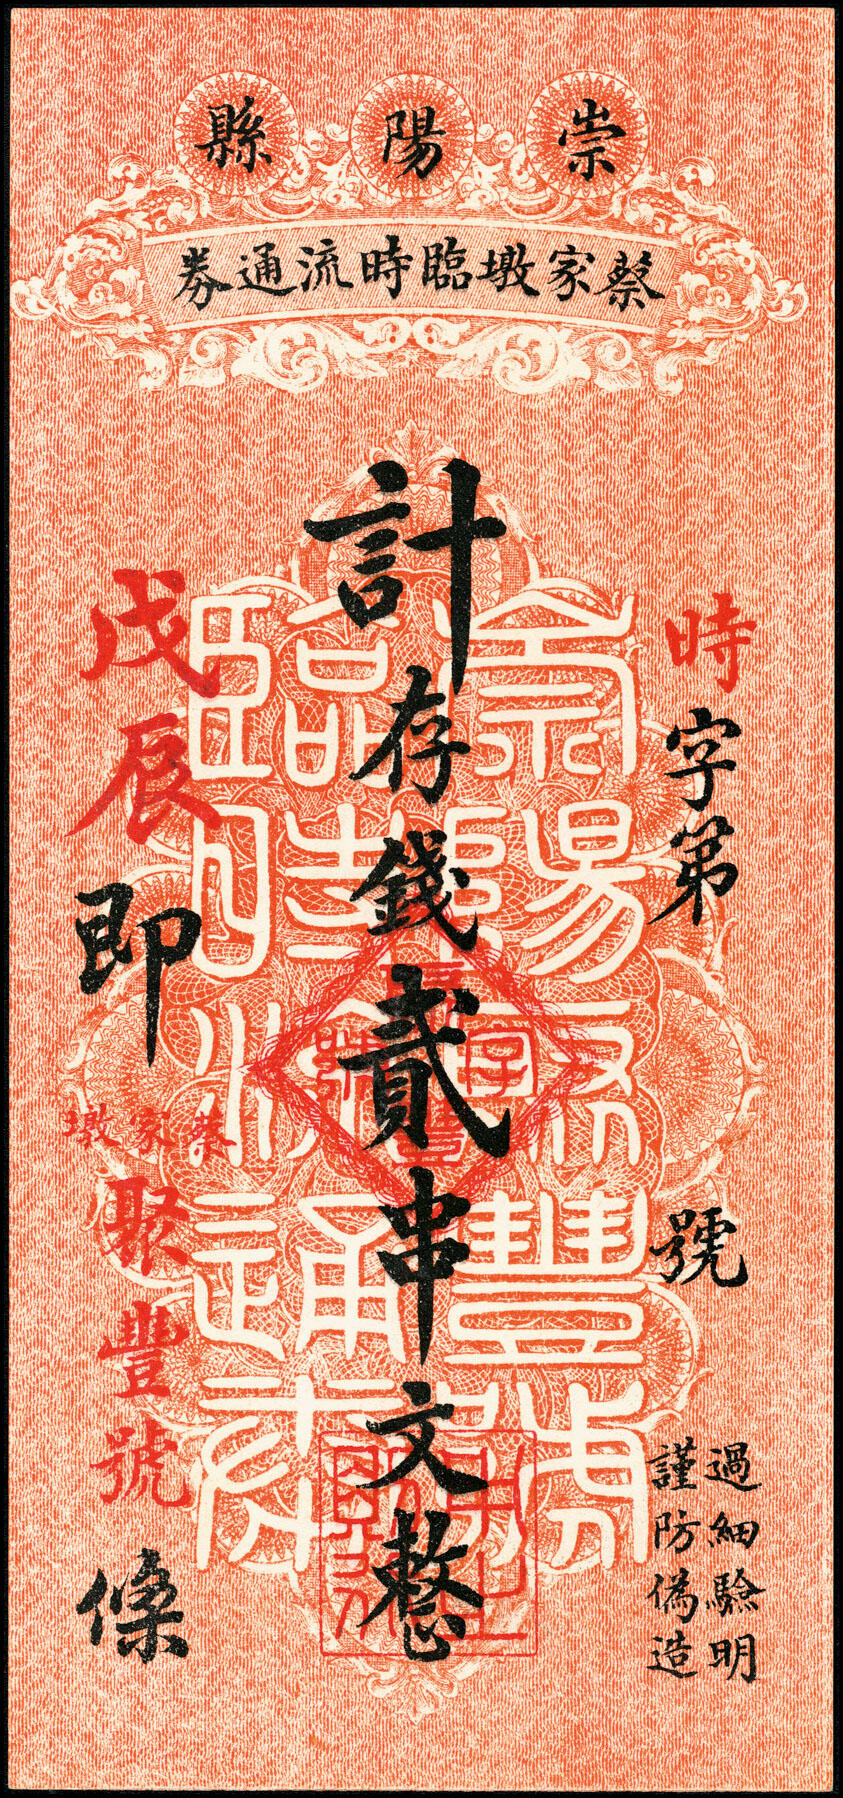 崇陽縣
蔡家墩臨時流通券
時字第 號
過細驗明
謹防偽造
計存錢貳串文整
戊辰 即
蔡家墩
聚豐號 條